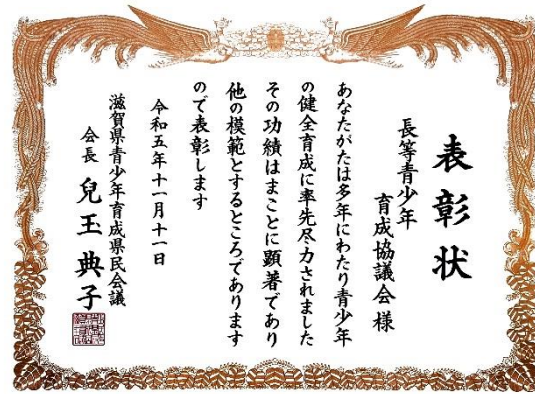 表彰状
長等青少年
育成協議会 様
あなたがたは多年にわたり青少年
の健全育成に率先尽力されました
その功績はまことに顕著であり
他の模範とするところであります
ので表彰します
令和五年十一月十一日
滋賀県青少年育成県民会議
会長 兒玉典子